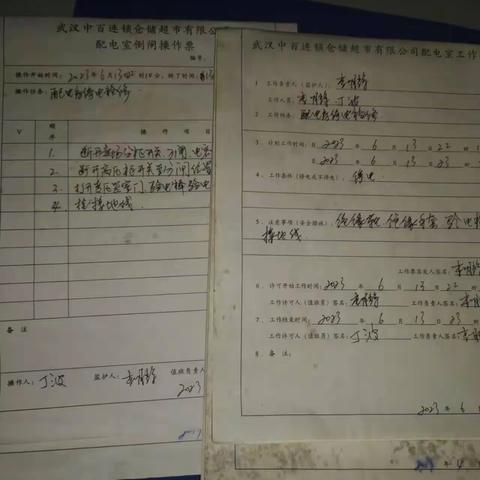 武汉中百连锁仓储超市有限公
配电室倒闸操作票
编号:
操作开始时间: 2023年6月13日22时10分,终了时间:
操作任务: 配电房停电检修
V 顺序 操作项目
1. 断开
2. 断开高压柜开关至分闸位置
3. 打开高压 门 验电棒验电
4. 挂接地线
备注
操作人: 丁波 监护人: 值班负责人
2023
武汉中百连锁仓储超市有限公司配电室工作
1 工作负责人(监护人):
工作人员: 丁波
2 工作任务: 配电房停电检修
3. 计划工作时间: 2023 年 6 月 13 日 22 时
2023 年 6 月 13 日 23
4. 工作条件(停电或不停电): 停电
5. 注意事项(安全措施): 绝缘靴 绝缘手套 验电
接地线
工作票签发人签名:
6. 许可开始工作时间: 2023 年 6 月 13 日 22 时
工作许可人(值班员)签名: 工作负责人签名:
7. 工作结束时间: 2023 年 6 月 13 日 23 时
工作许可人(值班员)签名: 丁波 工作负责人签名:
8. 备注:
2023 年 6